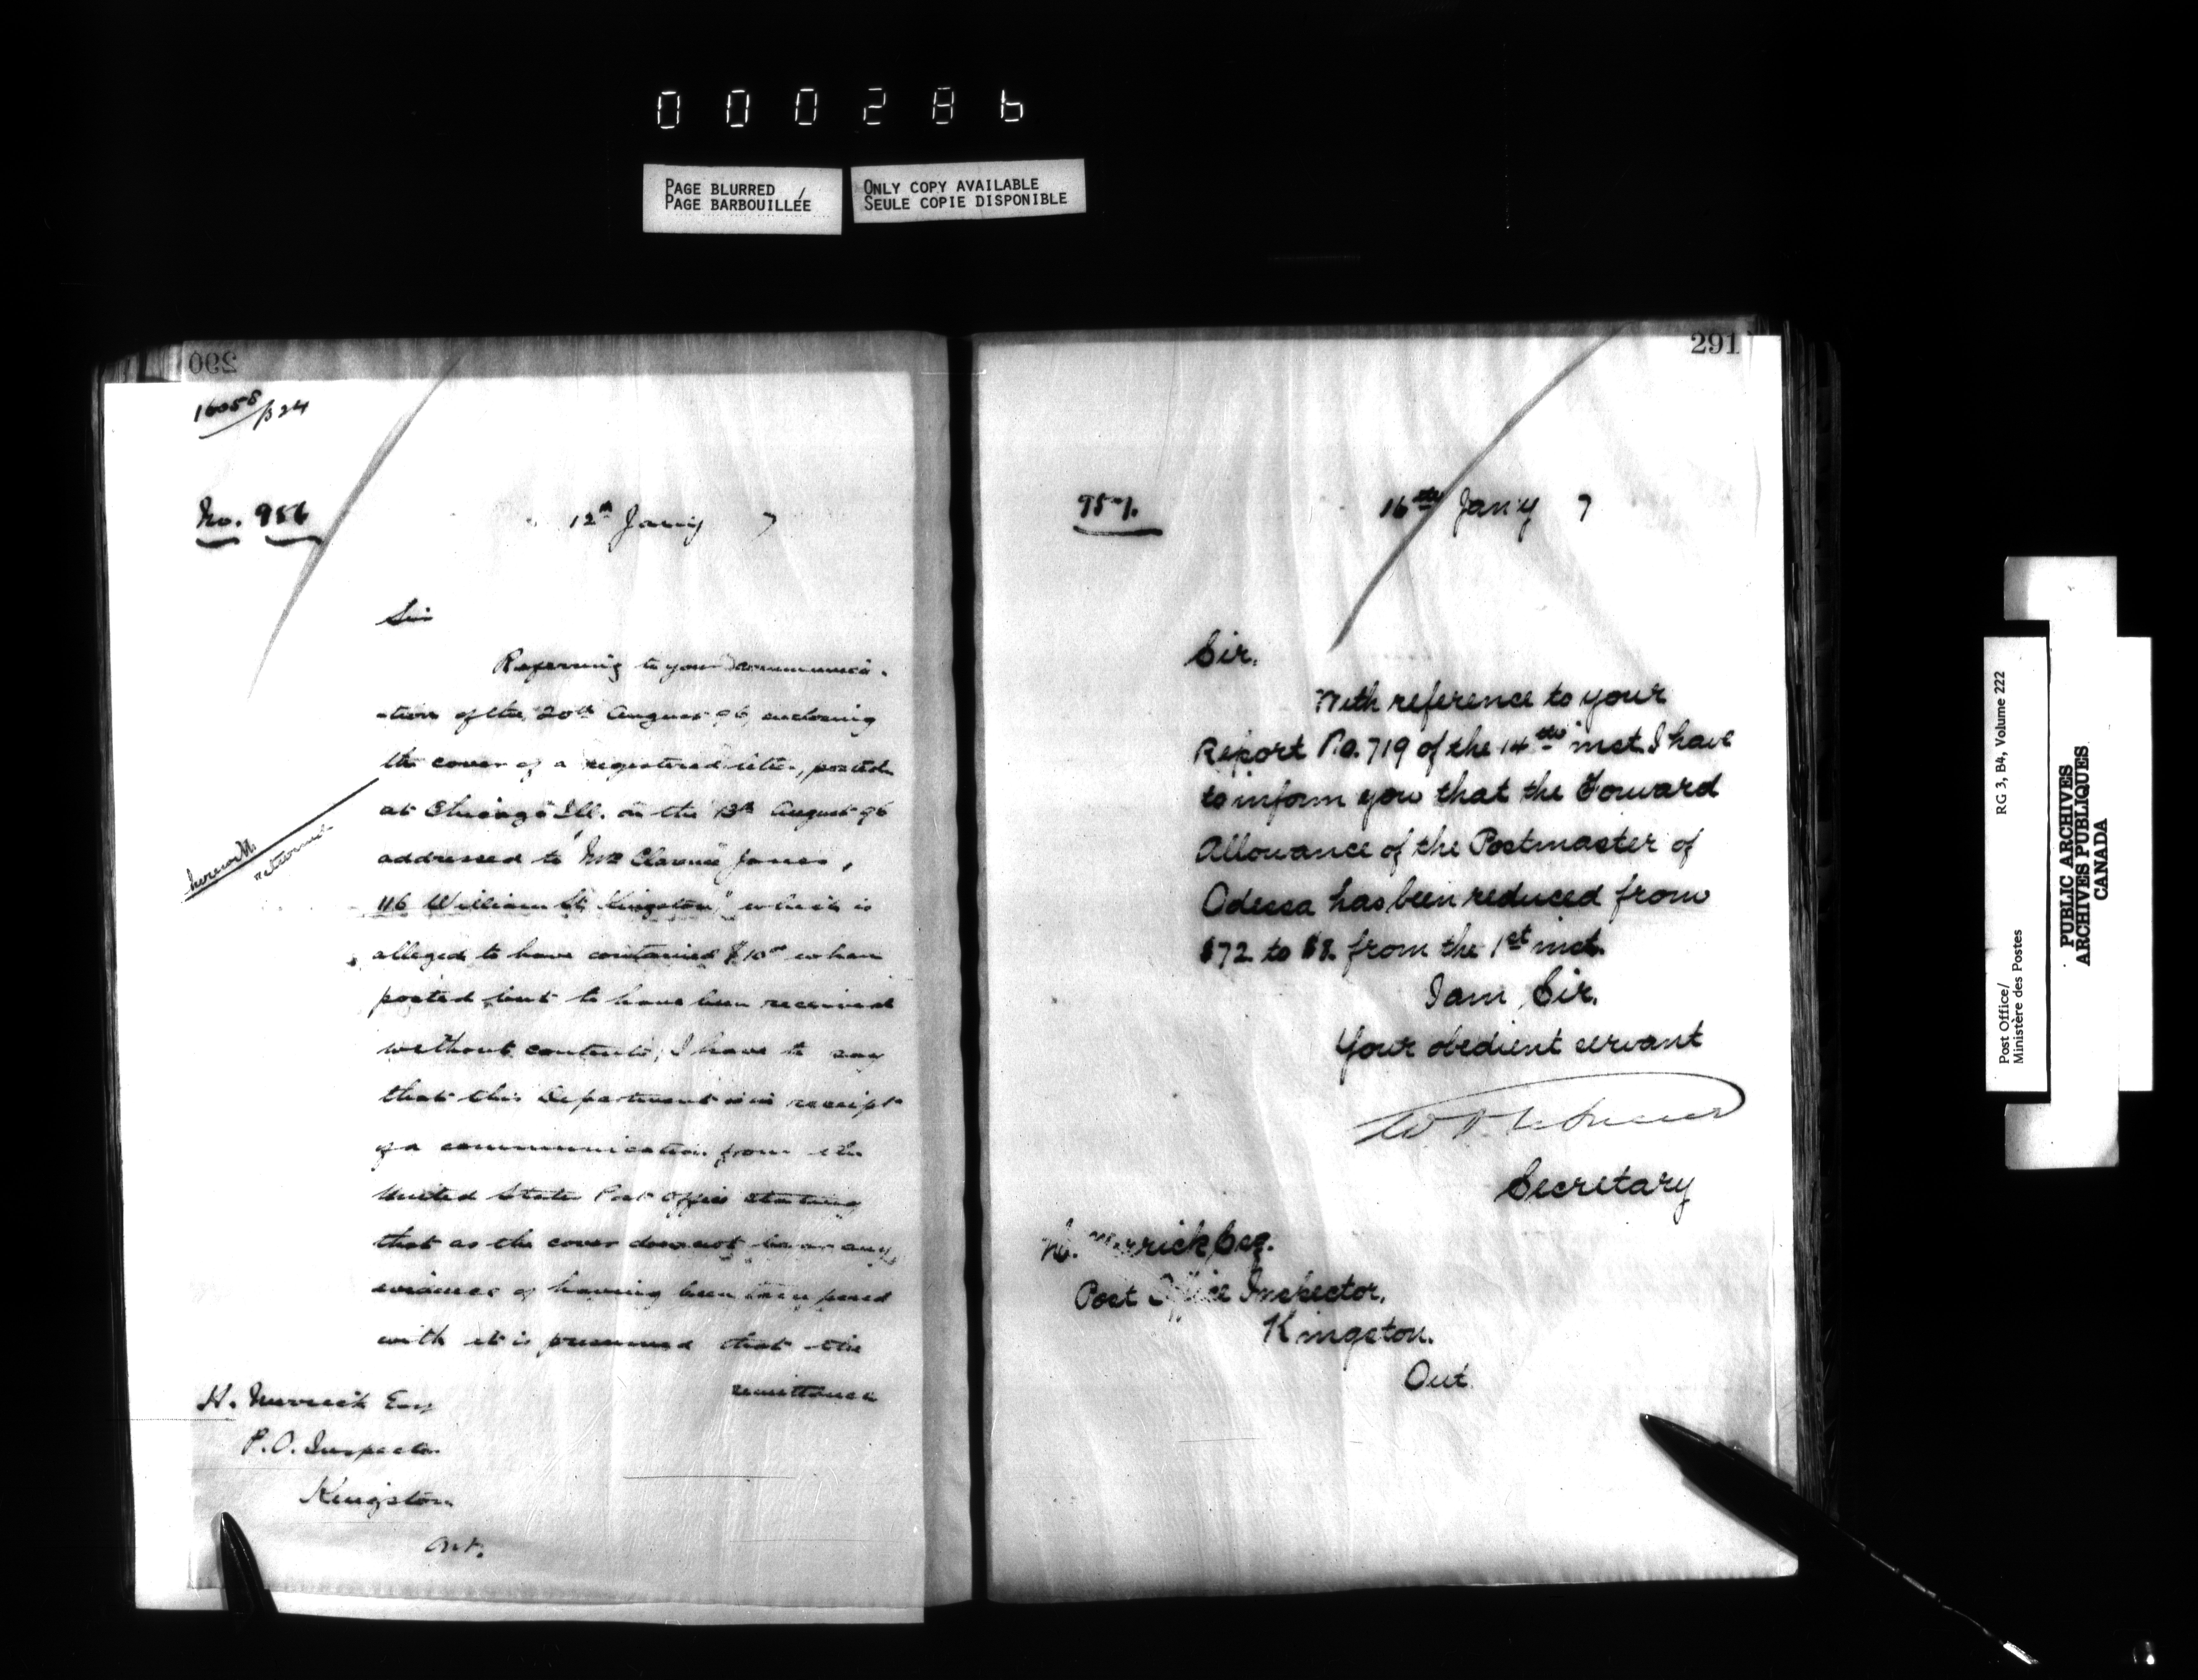 000286
PAGE BLURRED
PAGE BARBOUILLÉE
ONLY COPY AVAILABLE
SEULE COPIE DISPONIBLE
290
16055/324
No. 956
12th Jan'y 7
Sir
Referring to your communica-
-tion of the 20th August 96, enclosing
the cover of a registered letter, posted
at Chicago Ill. on the 13th August 96
addressed to "Mr Clarence Jones,
116 William St. Kingston," which is
alleged to have contained $10 when
posted but to have been received
without contents, I have to say
that this Department is in receipt
of a communication from the
United States Post Office stating
that as the cover does not bear any
evidence of having been tampered
with it is presumed that the
remittance
herewith
returned
H. Merrick Esq
P.O. Inspector
Kingston
Ont.
291
957.
16th Jan'y 7
Sir,
With reference to your
Report No. 719 of the 14th inst. I have
to inform you that the Forward
Allowance of the Postmaster of
Odessa has been reduced from
$72 to $8. from the 1st inst.
I am, Sir,
Your obedient servant
Secretary
Merrick Esq.
Post Office Inspector,
Kingston.
Ont
Post Office/
Ministère des Postes
RG 3, B4, Volume 222
PUBLIC ARCHIVES
ARCHIVES PUBLIQUES
CANADA